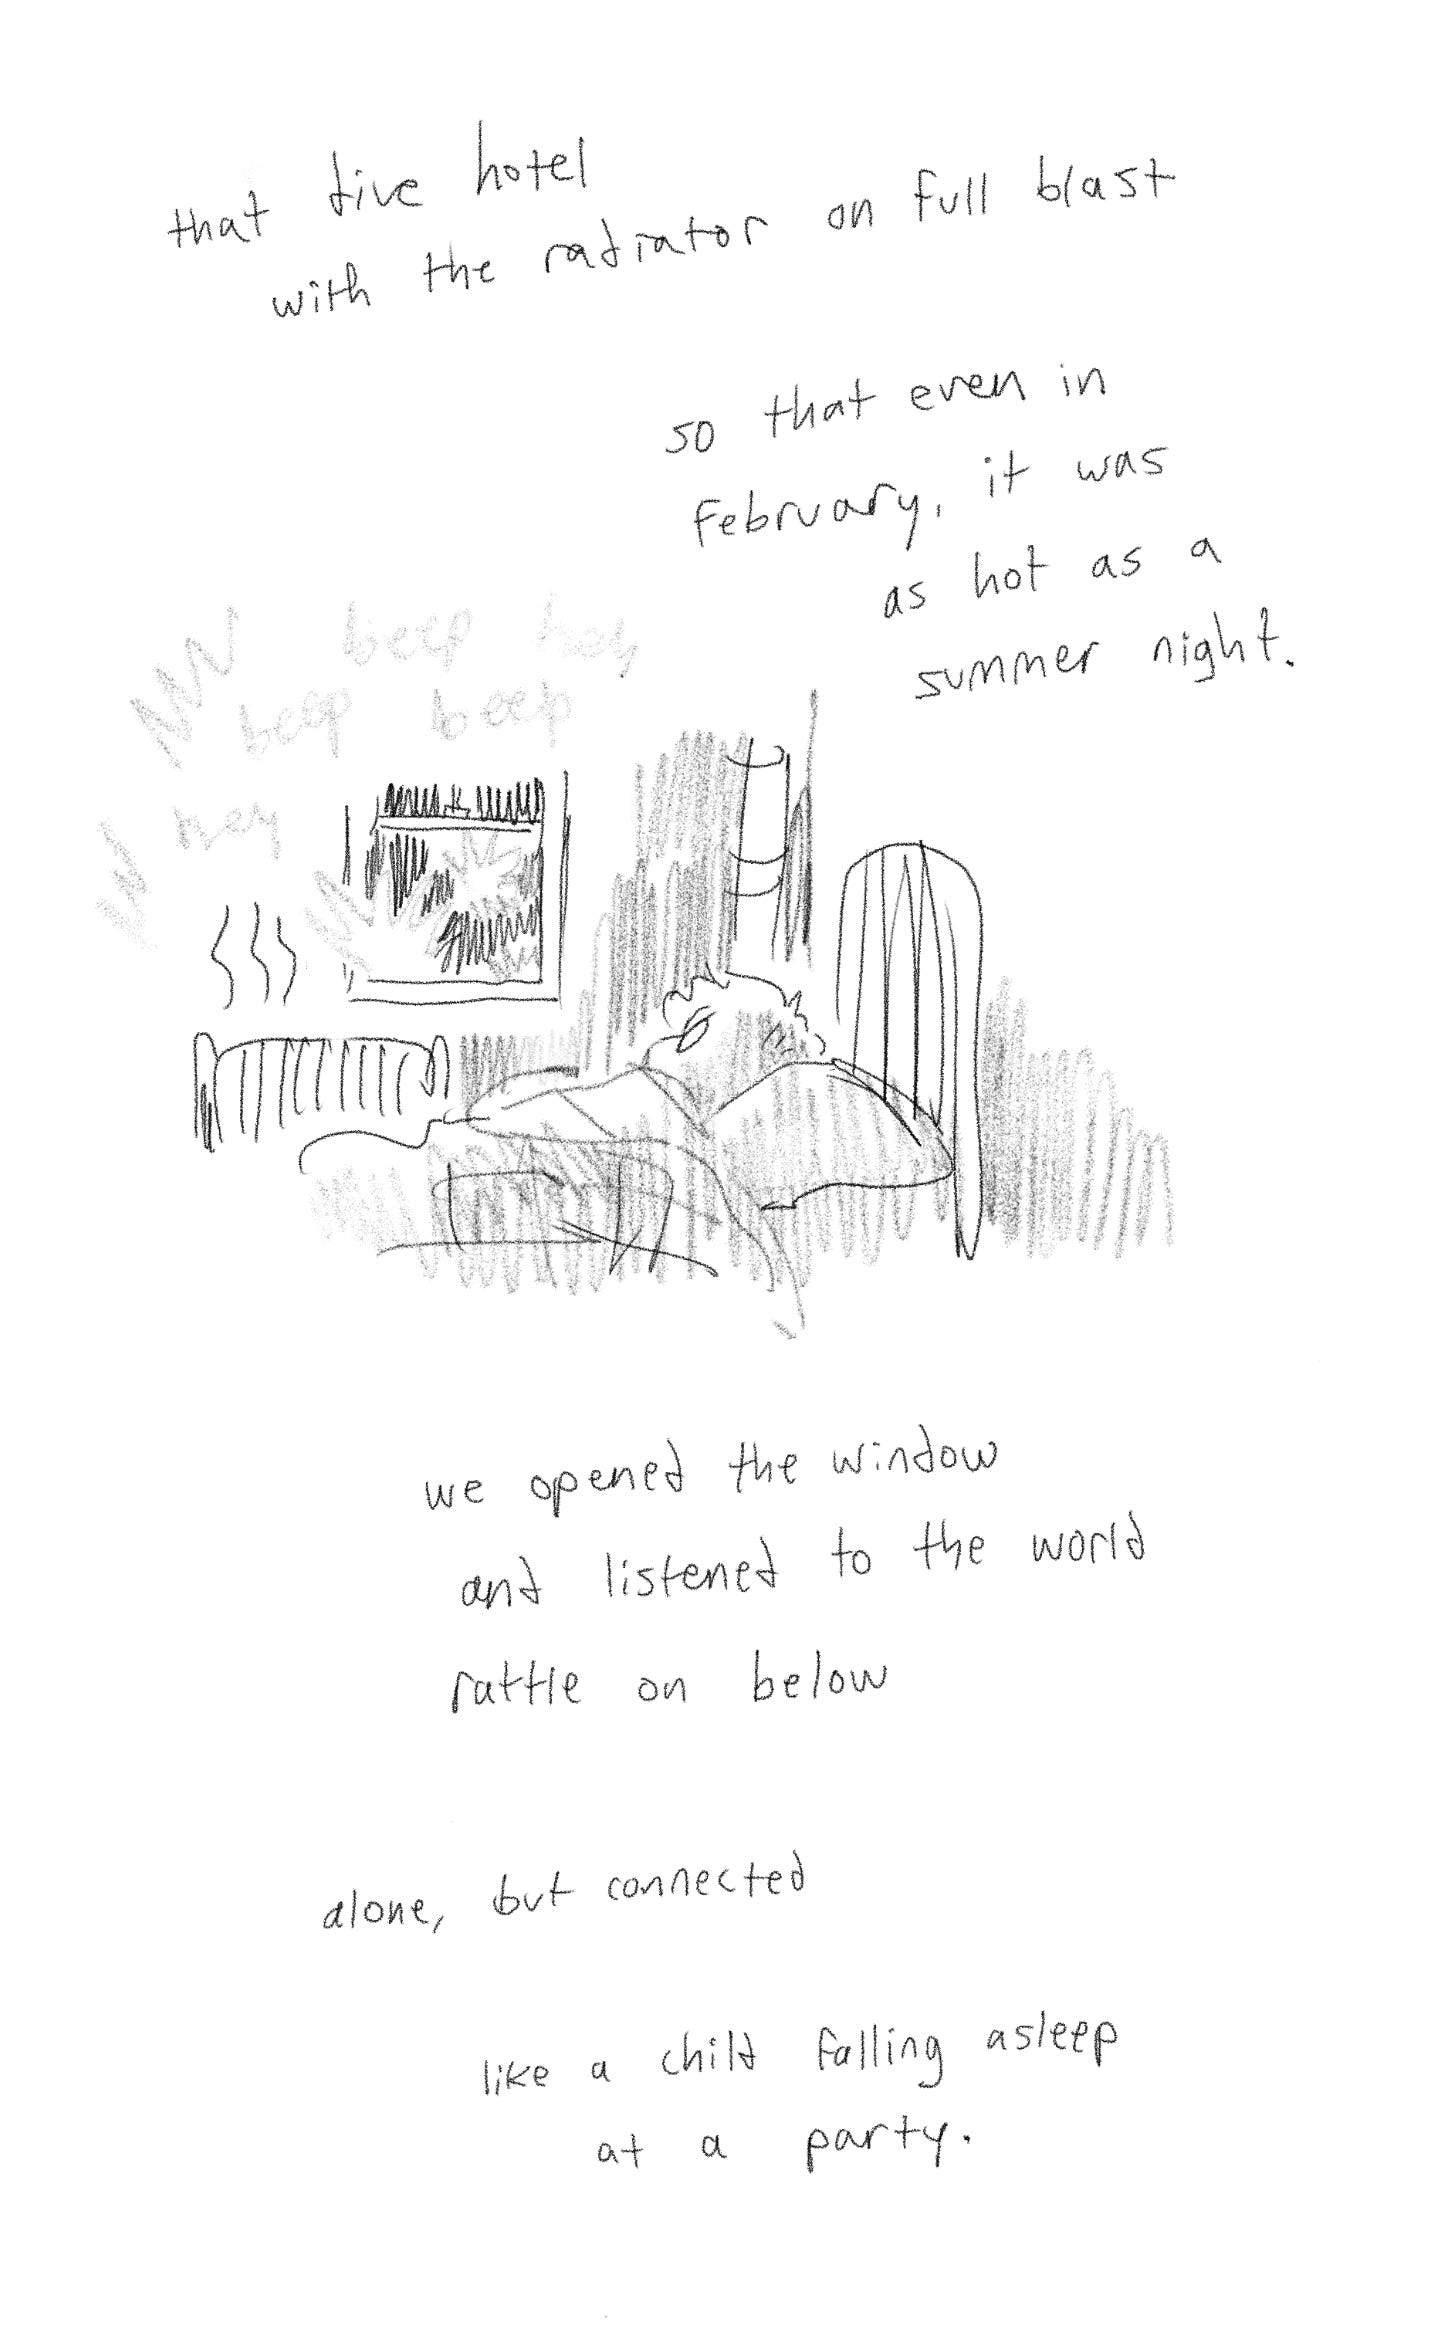 that dive hotel
with the radiator on full blast
so that even in
february, it was
as hot as a
summer night.
beep hey
beep beep
hey
we opened the window
and listened to the world
rattle on below
alone, but connected
like a child falling asleep
at a party.